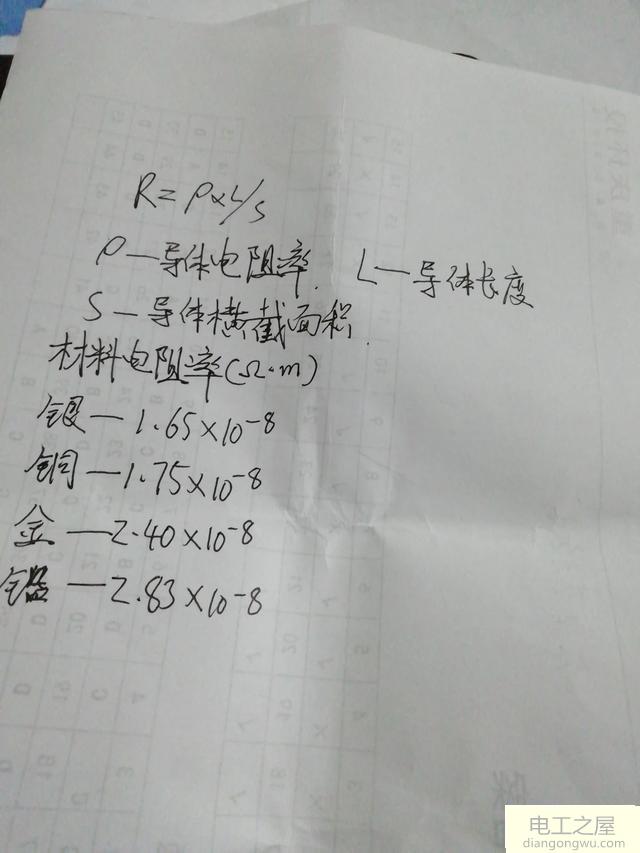 R=ρ×L/S
ρ—导体电阻率. L—导体长度
S—导体横截面积.
材料电阻率(Ω·m)
银—1.65×10-8
铜—1.75×10-8
金—2.40×10-8
—2.83×10-8
电工之屋
diangongwu.com